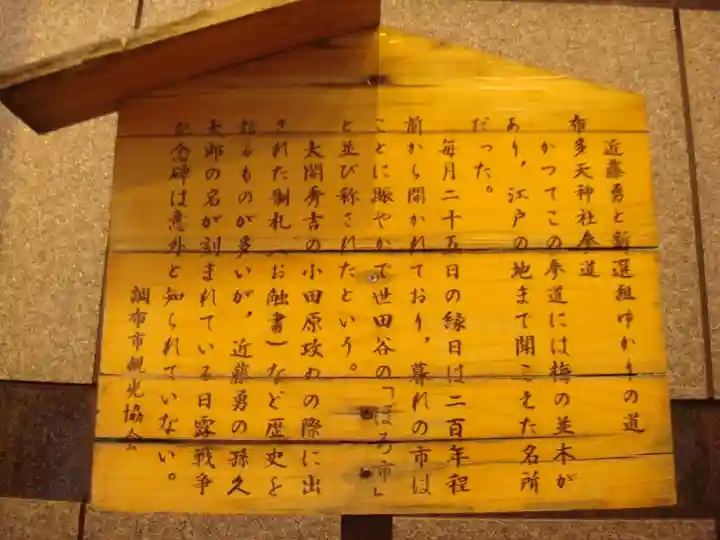 近藤勇と新選組ゆかりの道
布多天神社参道
かつてこの参道には梅の並木が
あり，江戸の地まで聞こえた名所
だった。
毎月二十五日の縁日は二百年程
前から開かれており，暮れの市は
ことに賑やかで世田谷の「ぼろ市」
と並び称されたという。
太閤秀吉の小田原攻めの際に出
された制札（お触書）など歴史を
語るものが多いが，近藤勇の孫久
太郎の名が刻まれている日露戦争
記念碑は意外と知られていない。
調布市観光協会